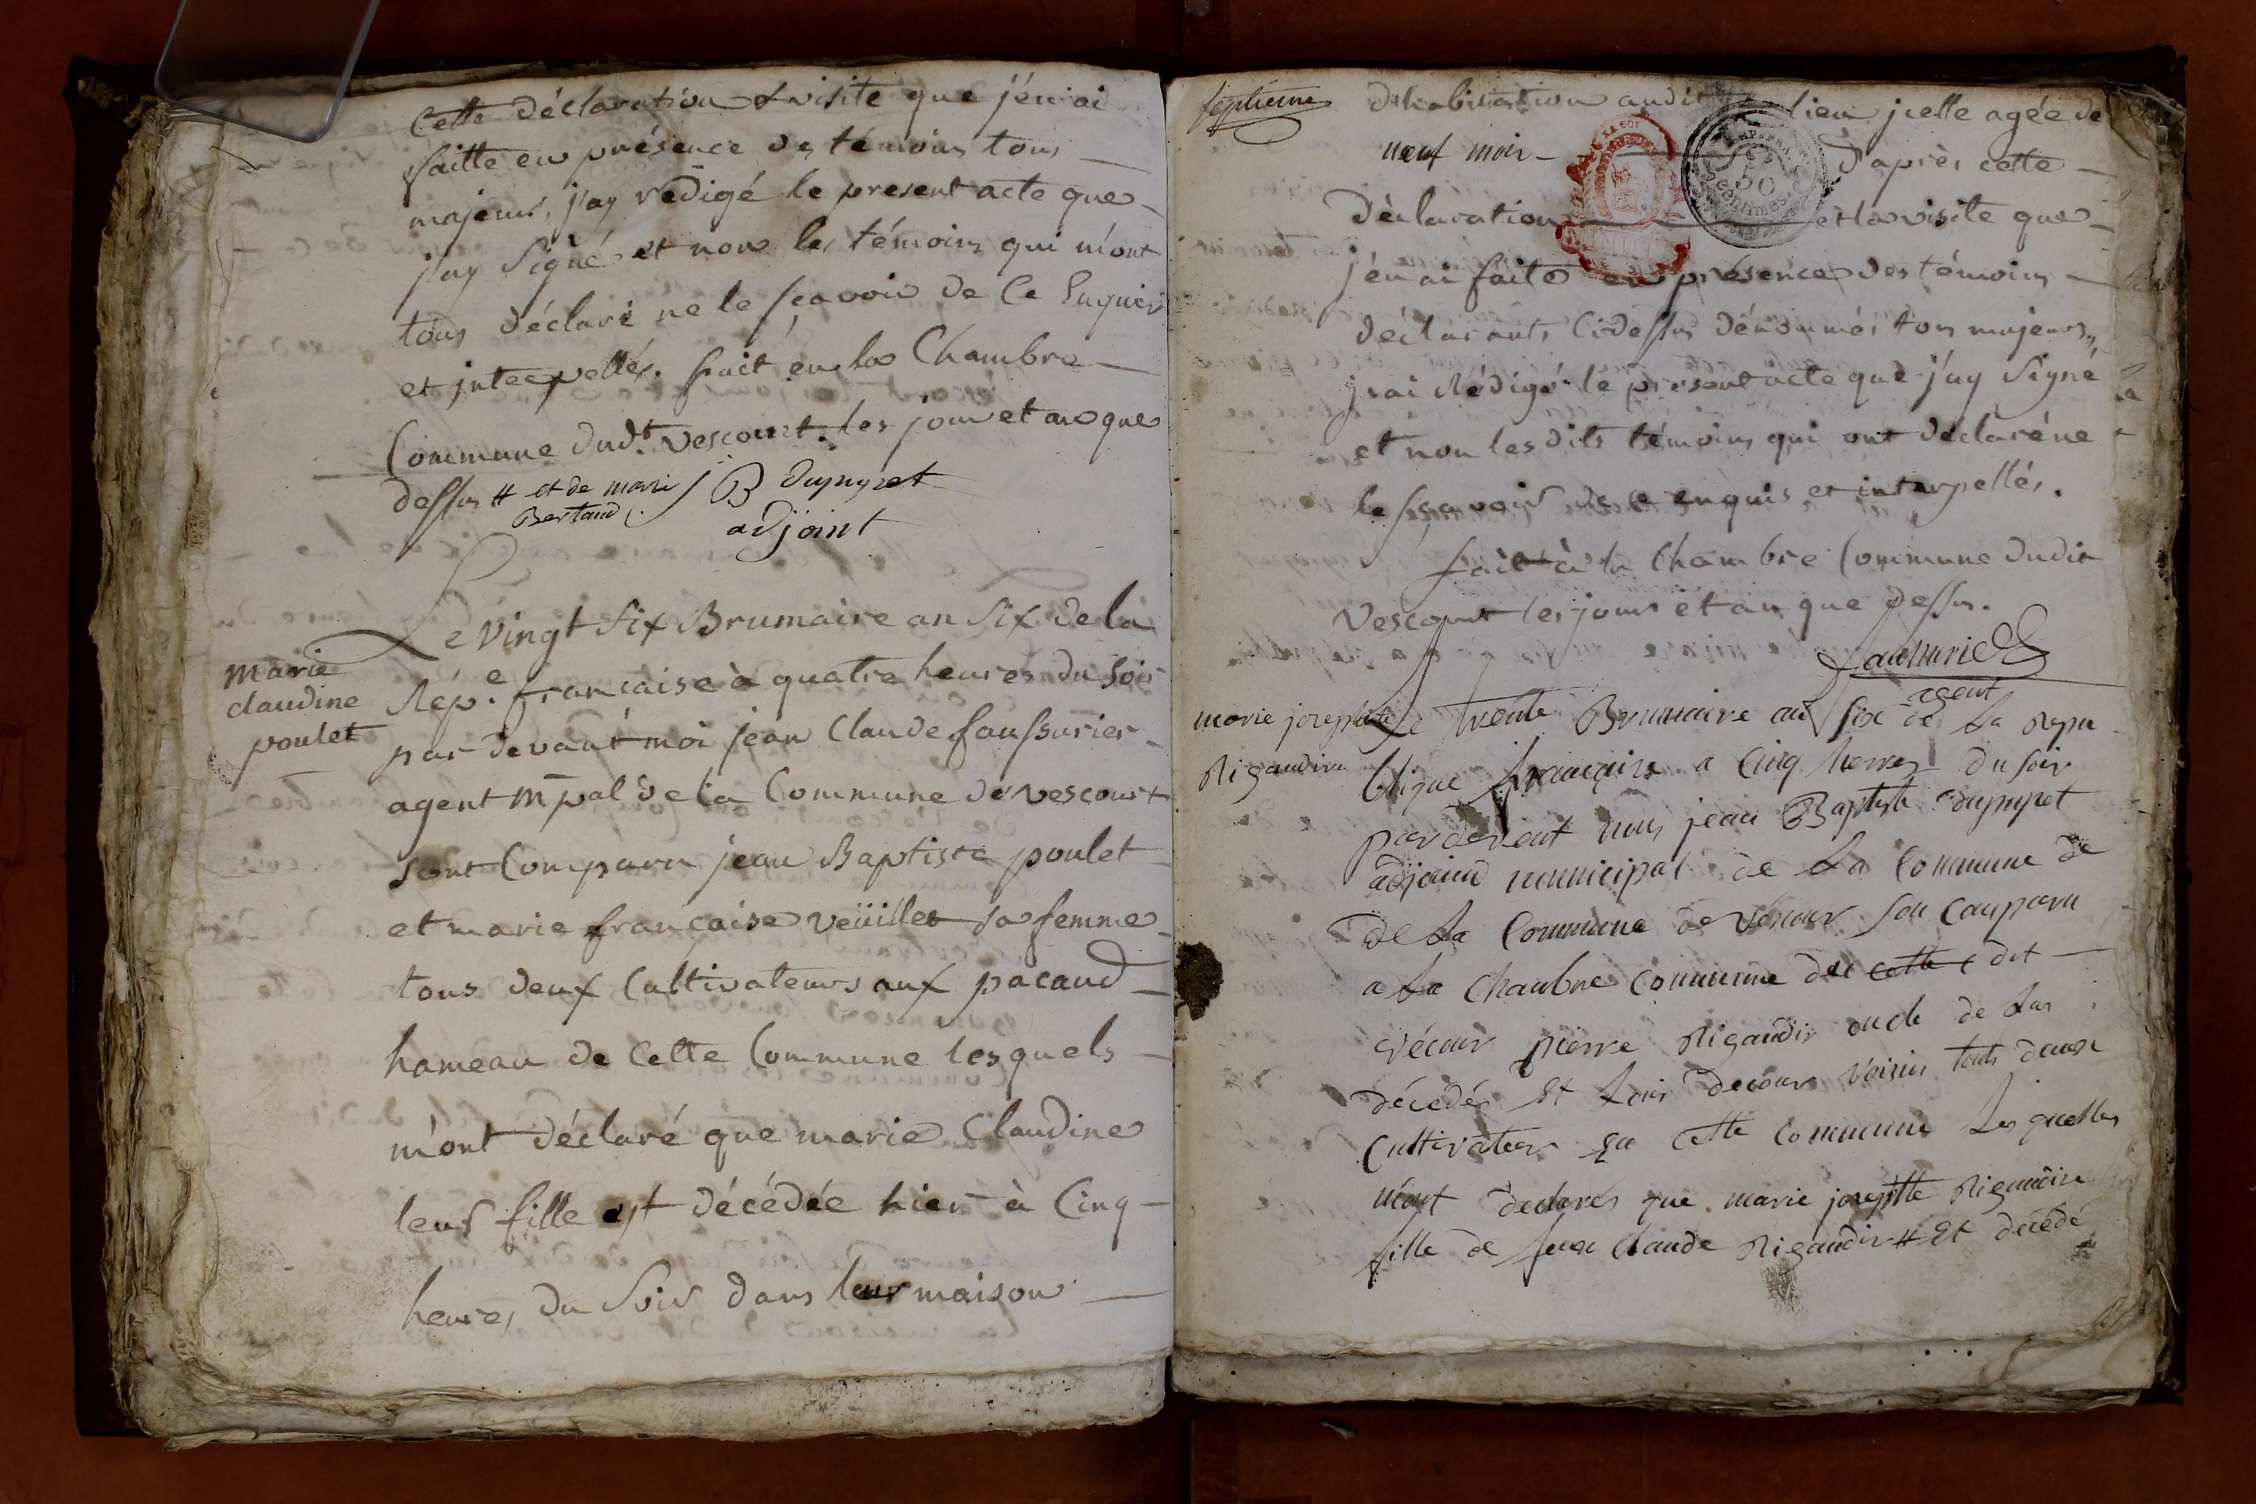 Cette déclaration & visite que j'en ai
faitte en présence des témoins tous
majeurs, j'ay rédigé le present acte que
j'ay signé et non les témoins qui m'ont
tous déclaré ne le sçavoir de ce enquis
et interpellés. fait en la Chambre
Commune dudt. Vescourt les jour et an que
dessus # et de marie
Bertaud
B Dupupet
adjoint
Le vingt six Brumaire an six de la
marie
claudine
poulet
Rép.e française à quatre heures du soir
par devant moi jean Claude faussurier
agent mpal de la Commune de vescourt
sont Comparu jean Baptiste poulet
et marie française veüillet sa femme
tous deux Cultivateurs aux pacaud
hameau de Cette Commune lesquels
m'ont déclaré que marie Claudine
leur fille est décédée hier à Cinq
heures du soir dans leur maison
septieme
D'habitation audit lieu icelle agée de
neuf mois D'après cette
Déclaration et la visite que
j'en ai faite en présence des témoins
déclarants Cidessus dénommés tous majeurs,
j'rai Rédigé le present acte que j'ay signé
et non les dits témoins qui ont déclaré ne
le sçavoir de ce enquis et interpellés.
fait à la Chambre Commune dudit
Vescourt les jour et an que dessus.
agent
marie josephte
Rigaudin
Le trente Brumaire an six de la Repu
blique française a Cinq heures du soir
pardevant nous jean Baptiste Dupupet
adjoind municipal de la Commune de
de la Commune de vécour son comparu
a la Chambre Commune de cette dit
vécour pierre Rigaudin oncle de la
décédés Et Louis Decour voisin touts deux
Cultivateur en cette Commune Lesquelles
m'ont declarés que marie josephte Rigaudin
fille de feux Claude Rigaudin # Et décédé
50
centimes